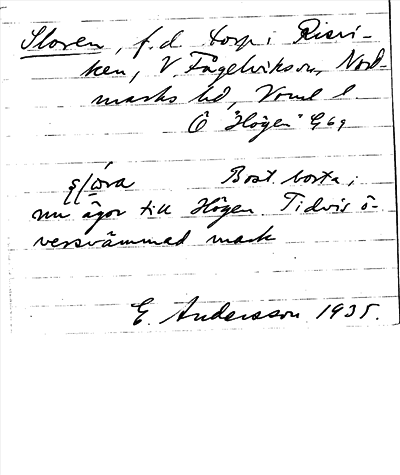 Sloren, f.d. torp i Risvi-
ken, V. Fågelviks sn, Nord-
marks hd, Vrml l.
Ö "Högen" G69
Bost. borta;
nu ägor till Högen Tidvis ö-
versvämmad mark
E. Andersson 1935.